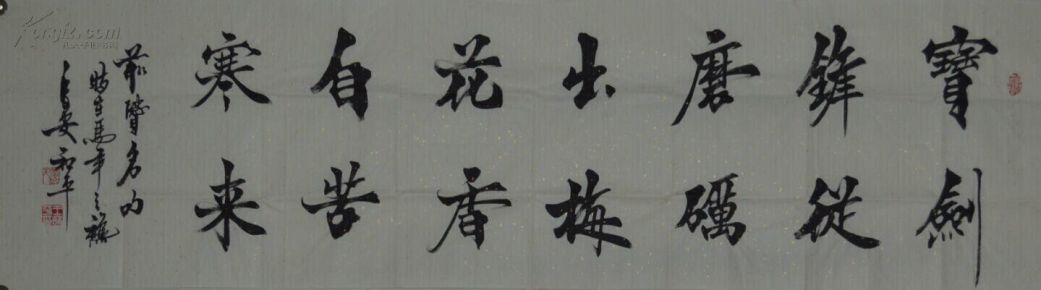 寶劍
鋒從
磨礪
出梅
花香
自苦
寒来
前賢名句
時在馬年之秋
長安和平